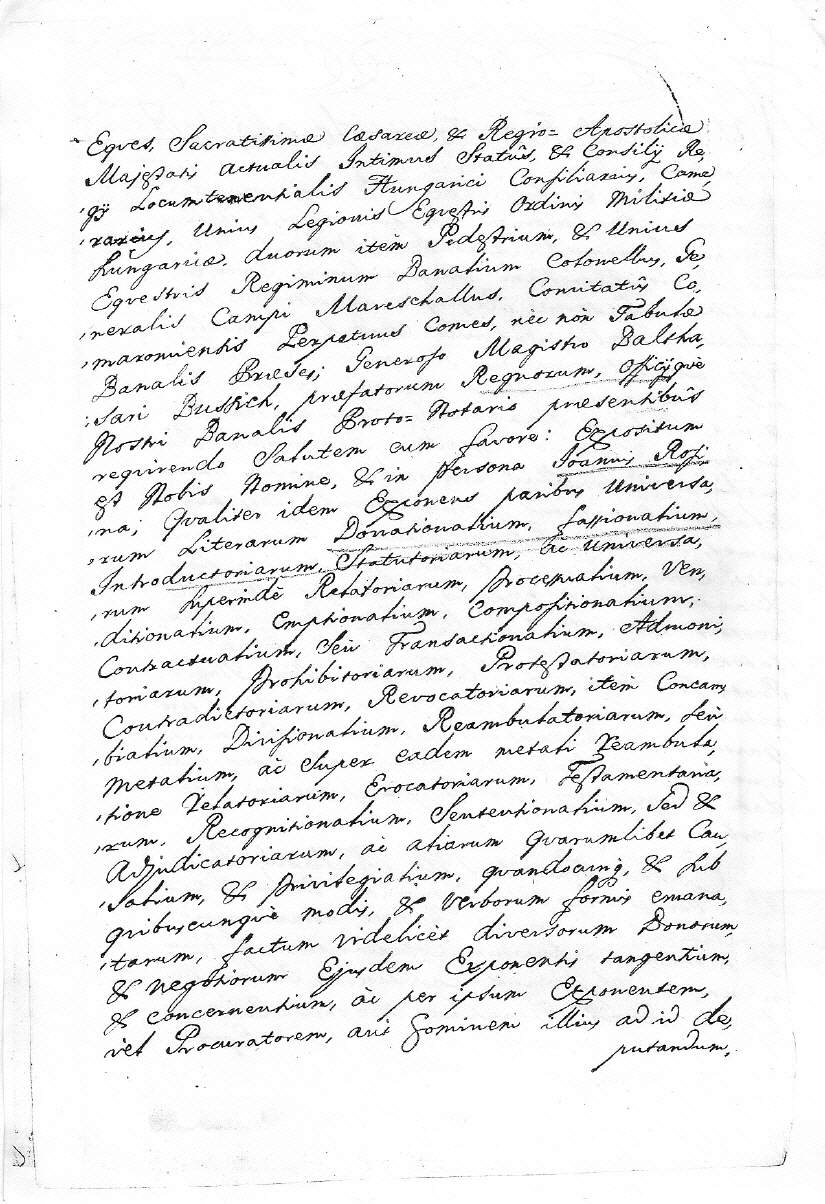 Eques, Sacratissimæ Cæsareæ, & Regio= Apostolicæ
Majestatis actualis Intimus Statûs, & Consilij Re,
,gij Locumtenentialis Hungarici Consiliarius, Came,
,rarius, Unius Legionis Equestris Ordinis Militiæ
Hungaricæ, duorum item Pedestrium, & Unius
Equestris Regiminum Banalium Colonellus, Ge,
,neralis Campi Mareschallus, Comitatûs Co,
,maromiensis Perpetuus Comes, nec non Tabulæ
Banalis Præses; Generoso Magistro Baltha,
,sari Dussich, præfatorum Regnorum, Officijque
Nostri Banalis Proto= Notario præsentibûs
requirendo Salutem cum favore: Expositum
est Nobis Nomine, & in Persona Joannis Rosi,
,na; Qualiter idem Exponens paribus Universa,
,rum Literarum Donationalium, fassionalium,
Introductoriarum, Statutoriarum, ac Universa,
,rum superindè Relatoriarum, processualium, Ven,
,ditionalium, Emptionalium, Compositionalium,
Contractualium, Seu Transactionalium, Admoni,
,toriarum, Prohibitoriarum, Protestatoriarum,
Contradictoriarum, Revocatoriarum, item Concam,
,bialium, Divisionalium, Reambulatoriarum, seu
Metalium, ac super eadem metali reambula,
,tione relatoriarum, Evocatoriarum, Testamentaria,
,rum, Recognitionalium, Sententionalium, Sed &
Adjudicatoriarum, ac aliarum quarumlibet Cau,
,salium, & privilegialium, quandocunq, & sub
quibuscunquè modis, & Verborum formis emana,
,tarum, factum videlicèt diversorum Bonorum,
& negotiorum Ejusdem Exponentis tangentium,
& concernentium, ac per ipsum Exponentem,
vel Procuratorem, aut hominem illius ad id de,
putandum,